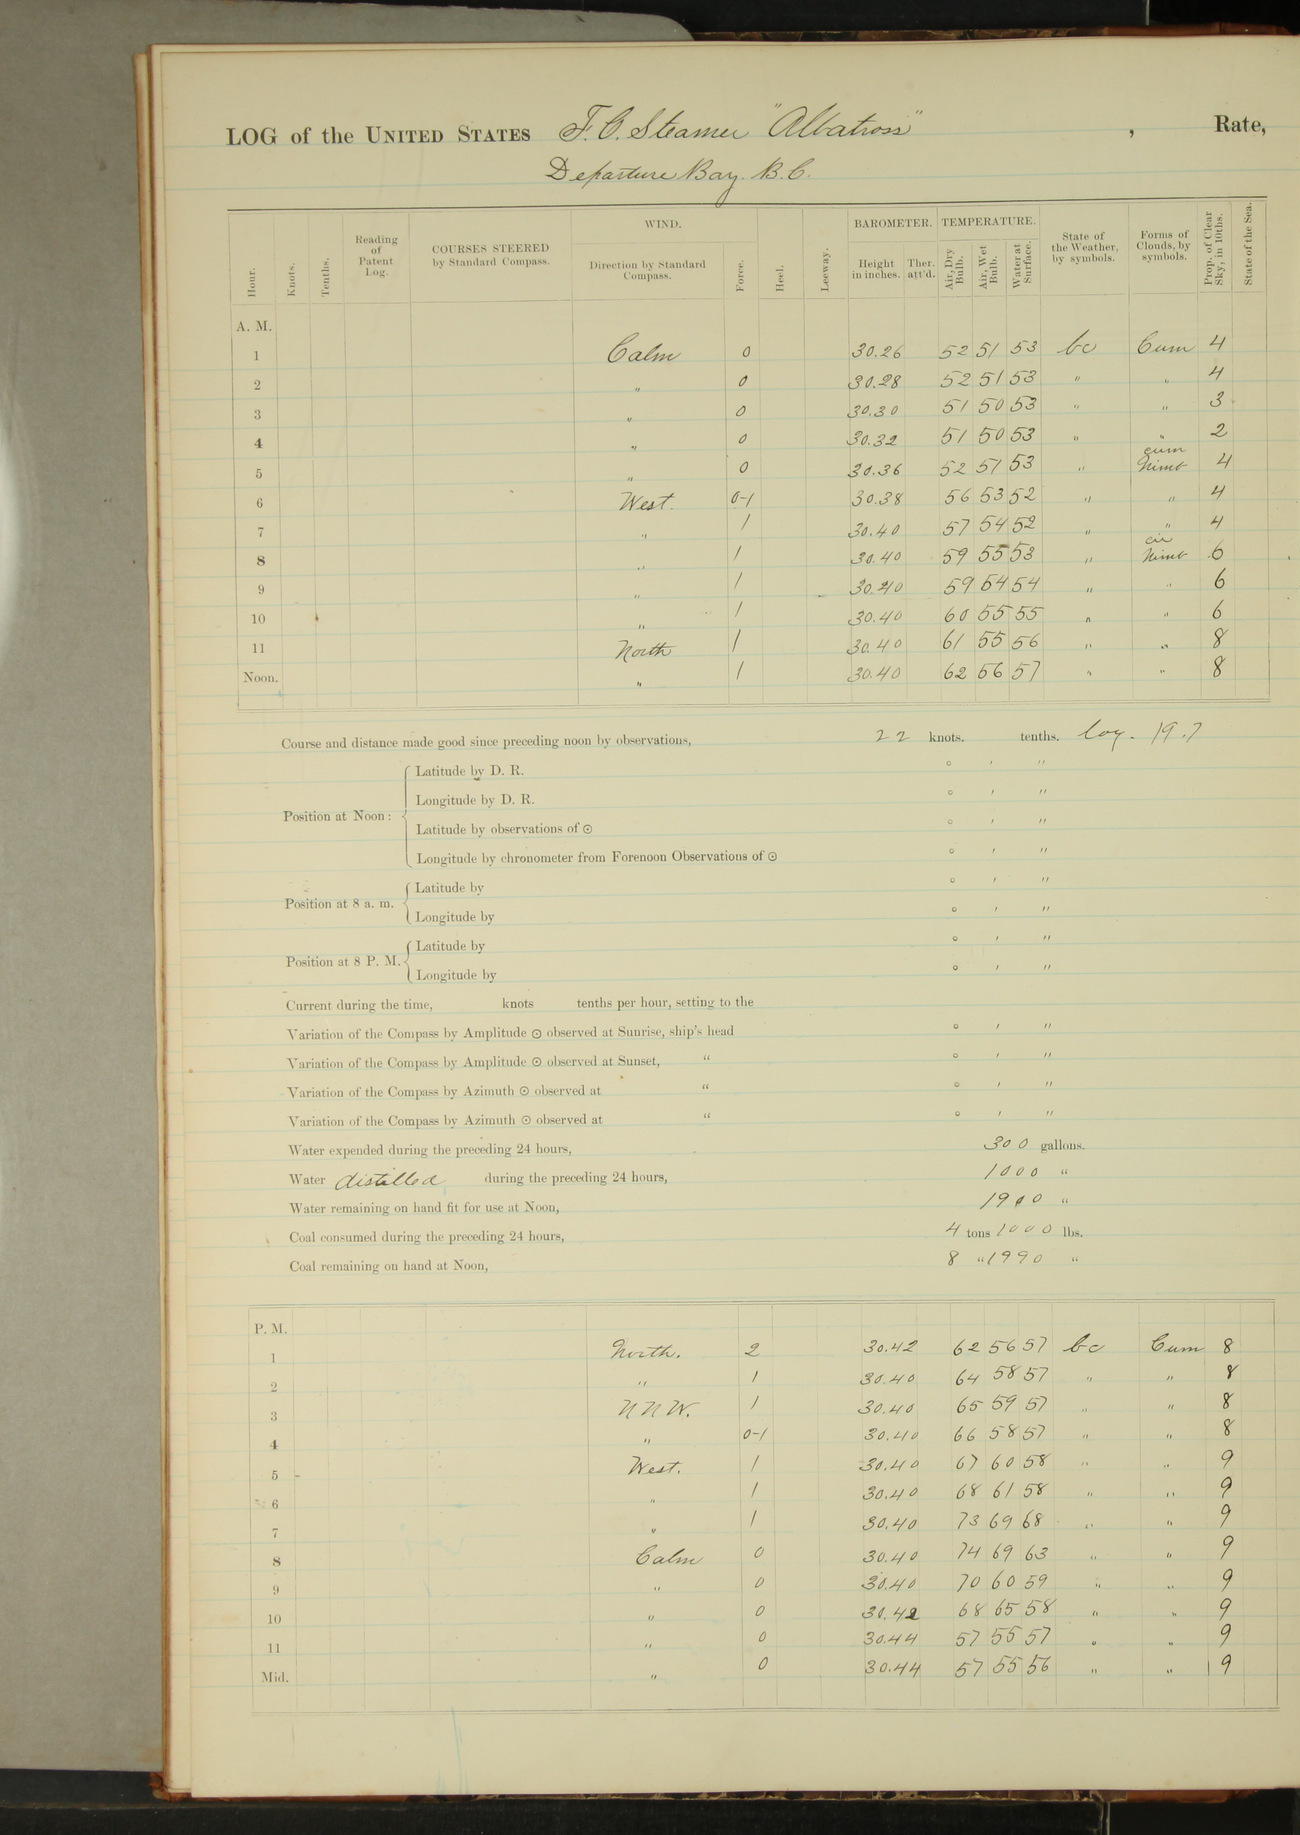 LOG of the UNITED STATES F. C. Steamer "Albatross", Rate,
Departure Bay. B. C.
Hour. Knots. Tenths. Reading of Patent Log. COURSES STEERED by Standard Compass. WIND. Direction by Standard Compass. Force. Heel. Leeway. BAROMETER. Height in inches. Ther. att'd. TEMPERATURE. Air, Dry Bulb. Air, Wet Bulb. Water at Surface. State of the Weather, by symbols. Forms of Clouds, by symbols. Prop. of Clear Sky, in 10ths. State of the Sea.
A. M.
1 Calm 0 30.26 52 51 53 bc Cum 4
2 " 0 30.28 52 51 53 " " 4
3 " 0 30.30 51 50 53 " " 3
4 " 0 30.32 51 50 53 " " 2
5 " 0 30.36 52 51 53 " cum Nimb 4
6 West. 0-1 30.38 56 53 52 " " 4
7 " 1 30.40 57 54 52 " " 4
8 " 1 30.40 59 55 53 " cir Nimb 6
9 " 1 30.40 59 54 54 " " 6
10 " 1 30.40 60 55 55 " " 6
11 North 1 30.40 61 55 56 " " 8
Noon. " 1 30.40 62 56 57 " " 8
Course and distance made good since preceding noon by observations, 22 knots. tenths. log. 19.7
Latitude by D. R. ° ' "
Longitude by D. R. ° ' "
Position at Noon:
Latitude by observations of ⊙ ° ' "
Longitude by chronometer from Forenoon Observations of ⊙ ° ' "
Latitude by ° ' "
Position at 8 a. m.
Longitude by ° ' "
Latitude by ° ' "
Position at 8 P. M.
Longitude by ° ' "
Current during the time, knots tenths per hour, setting to the
Variation of the Compass by Amplitude ⊙ observed at Sunrise, ship's head ° ' "
Variation of the Compass by Amplitude ⊙ observed at Sunset, " ° ' "
Variation of the Compass by Azimuth ⊙ observed at " ° ' "
Variation of the Compass by Azimuth ⊙ observed at " ° ' "
Water expended during the preceding 24 hours, 300 gallons.
Water distilled during the preceding 24 hours, 1000 "
Water remaining on hand fit for use at Noon, 1900 "
Coal consumed during the preceding 24 hours, 4 tons 1000 lbs.
Coal remaining on hand at Noon, 8 " 1990 "
P. M.
1 North. 2 30.42 62 56 57 bc Cum 8
2 " 1 30.40 64 58 57 " " 8
3 N N W. 1 30.40 65 59 57 " " 8
4 " 0-1 30.40 66 58 57 " " 8
5 West. 1 30.40 67 60 58 " " 9
6 " 1 30.40 68 61 58 " " 9
7 " 1 30.40 73 69 68 " " 9
8 Calm 0 30.40 74 69 63 " " 9
9 " 0 30.40 70 60 59 " " 9
10 " 0 30.42 68 65 58 " " 9
11 " 0 30.44 57 55 57 " " 9
Mid. " 0 30.44 57 55 56 " " 9